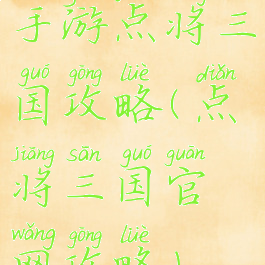 手游点将三
guó gòng lüè diǎn
国攻略(点
jiāng sān guó guān
将三国官
wǎng gòng lüè
网攻略)